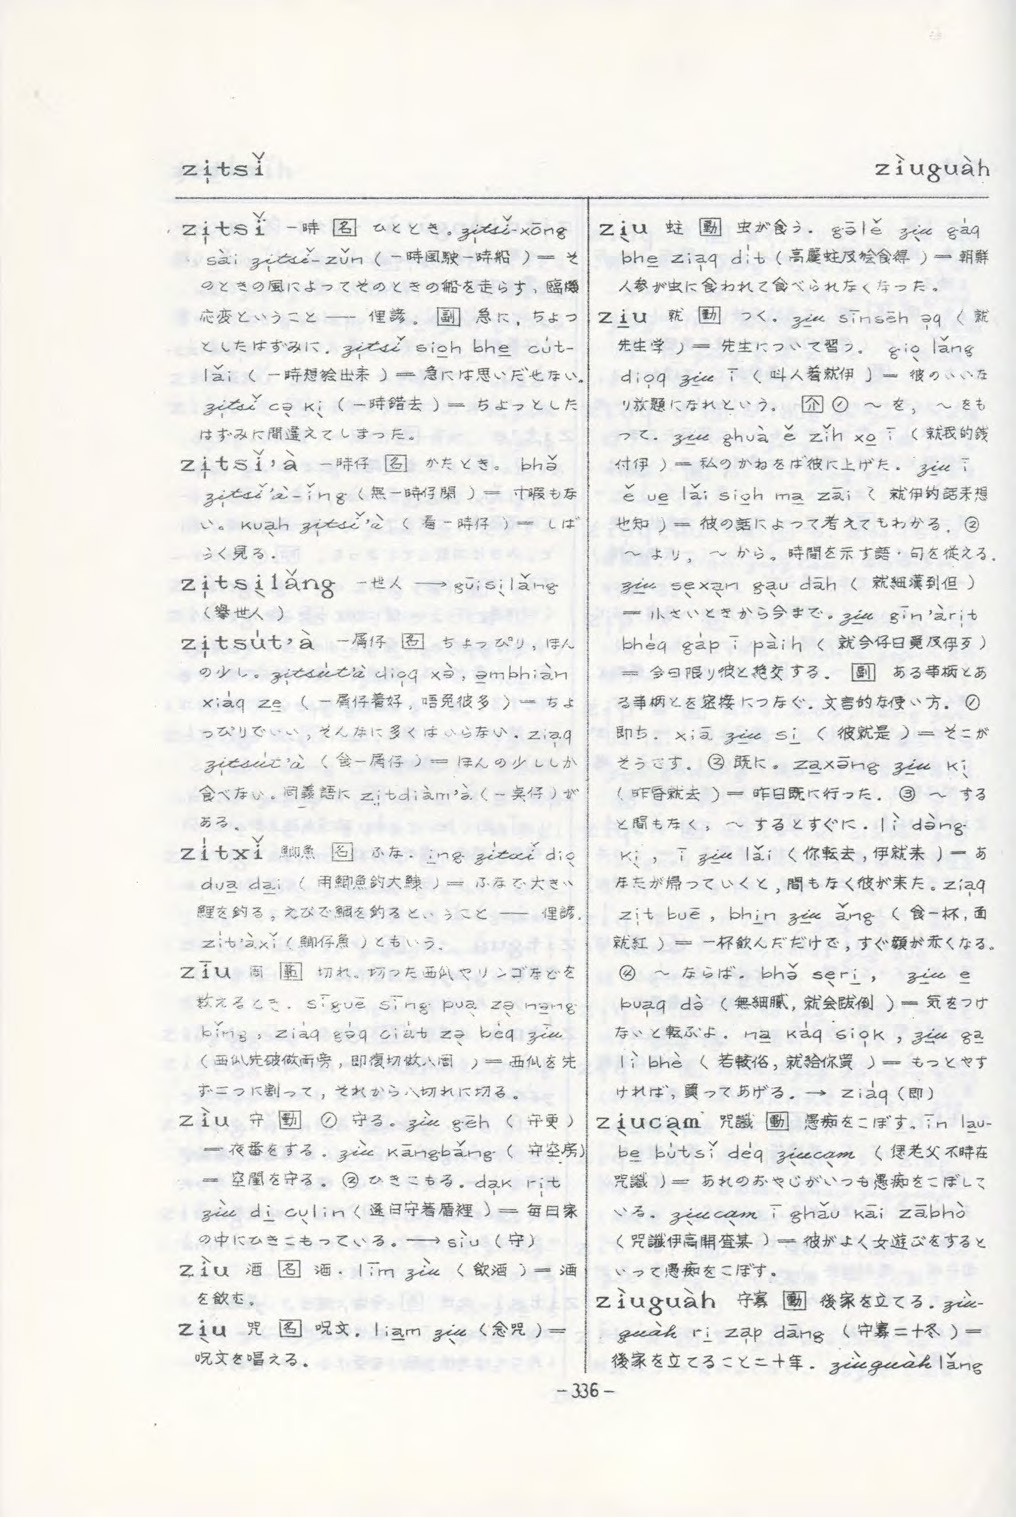 zi̩tsǐ
zìuguàh
zi̩tsǐ 一時 [名] ひととき。zi̩tsǐ-xōng
sài zi̩tsǐ-zǔn ( 一時風駛一時船 ) = そ
のときの風によってそのときの船を走らす,臨機
応変ということ ── 俚諺。[副] 急に,ちょっ
としたはずみに. zi̩tsǐ sioh bhe̲ cu̍t-
lǎi ( 一時想𣍐出来 ) = 急には思いだせない.
zi̩tsǐ cə̩ ki̩ ( 一時錯去 ) = ちょっとした
はずみに間違えてしまった。
zi̩tsǐ'à 一時仔 [名] かたとき。bhə̌
zi̩tsǐ'à-ǐng ( 無一時仔閒 ) = 寸暇もな
い。kua̩h zi̩tsǐ'à ( 看一時仔 ) = しば
らく見る.
zi̩tsi̩lǎng 一世人 ──→ gūisi̩lǎng
(舉世人 )
zi̩tsu̍t'à 一屑仔 [名] ちょっぴり,ほん
の少し。zi̩tsu̍t'à dioq xə̀, ə̲mbhiàn
xia̍q ze̲ ( 一屑仔着好,唔免彼多 ) = ちょ
っぴりでいい,そんなに多くはいらない. zia̍q
zi̩tsu̍t'à ( 食一屑仔 ) = ほんの少ししか
食べない。同義語に zi̩tdiàm'à (一点仔) が
ある.
zi̍txǐ 鯽魚 [名] ふな. i̲ng zi̍txǐ diə̩
dua̲ da̲i ( 用鯽魚釣大鰱 ) = ふなで大きい
鯉を釣る,えびで鯛を釣るということ ── 俚諺.
zi̍t'àxǐ (鯽仔魚 ) ともいう.
zīu 周 [範] 切れ。切った西瓜やリンゴなどを
数えるとき. sīguē sīng pua̩ zə̩ nə̲ng
bǐng, zia̍q gə̍q cia̍t zə̩ be̍q zīu
(西瓜先破做両旁,即復切做八周 ) = 西瓜を先
ず二つに割って,それから八切れに切る。
zìu 守 [動] ① 守る。zìu gēh ( 守更 )
= 夜番をする. zìu kāngbǎng ( 守空房)
= 空閨を守る。② ひきこもる. da̩k ri̍t
zìu di̲ cu̩lin ( 逐日守着厝裡 ) = 毎日家
の中にひきこもっている。──→ sìu ( 守 )
zìu 酒 [名] 酒. līm zìu ( 飲酒 ) = 酒
を飲む。
zi̩u 咒 [名] 呪文. lia̲m zi̩u (念咒 ) =
呪文を唱える.
zi̩u 蛀 [動] 虫が食う. gōlě zi̩u ga̍q
bhe̲ zia̍q di̍t ( 高麗蛀及𣍐食得 ) = 朝鮮
人参が虫に食われて食べられなくなった。
zi̲u 就 [動] つく. zi̲u sīnsēh əq ( 就
先生学 ) = 先生について習う。giə̩ lǎng
dioq zi̲u ī ( 叫人着就伊 ) = 彼のいいな
り放題になれという。[介] ① ～ を, ～ をも
って. zi̲u ghuà ě zǐh xo̲ ī ( 就我的銭
付伊 ) = 私のかねをば彼に上げた. zi̲u ī
ě ue̲ lǎi sioh ma̲ zāi ( 就伊的話来想
也知 ) = 彼の話によって考えてもわかる. ②
～ より, ～ から。時間を示す語・句を従える.
zi̲u se̩xa̩n ga̩u dāh ( 就細漢到但 )
= 小さいときから今まで。zi̲u gīn'àri̍t
bhe̍q ga̍p ī pàih ( 就今仔日覓及伊歹 )
= 今日限り彼と絶交する. [副] ある事柄とあ
る事柄とを密接につなぐ. 文言的な使い方. ①
即ち. xiā zi̲u si̲ ( 彼就是 ) = そこが
そうです. ② 既に。zaxāng zi̲u ki̩
( 昨昏就去 ) = 昨日既に行った. ③ ～ する
と間もなく, ～ するとすぐに. lì dàng
ki̩, ī zi̲u lǎi ( 你転去,伊就来 ) = あ
なたが帰っていくと,間もなく彼が来た。zia̍q
zi̍t buē, bhi̲n zi̲u ǎng ( 食一杯,面
就紅 ) = 一杯飲んだだけで,すぐ顔が赤くなる。
④ ～ ならば. bhə̌ se̩ri̲, zi̲u e̲
bua̍q də̀ ( 無細膩,就会跋倒 ) = 気をつけ
ないと転ぶよ. na̲ ka̍q sio̍k, zi̲u ga̲
lì bhè ( 若較俗,就給你買 ) = もっとやす
ければ,買ってあげる. ─→ zia̍q (即)
zi̩uca̩m 咒讖 [動] 愚痴をこぼす. īn la̲u-
be̲ bu̍tsǐ de̍q zi̩uca̩m ( 㑩老父不時在
咒讖 ) = あれのおやじがいつも愚痴をこぼして
いる. zi̩uca̩m ī ghǎu kāi zābhò
( 咒讖伊高開査某 ) = 彼がよく女遊びをすると
いって愚痴をこぼす.
zìuguàh 守寡 [動] 後家を立てる. zìu-
guàh ri̲ za̍p dāng ( 守寡二十冬 ) =
後家を立てること二十年. zìuguàh lǎng
－336－